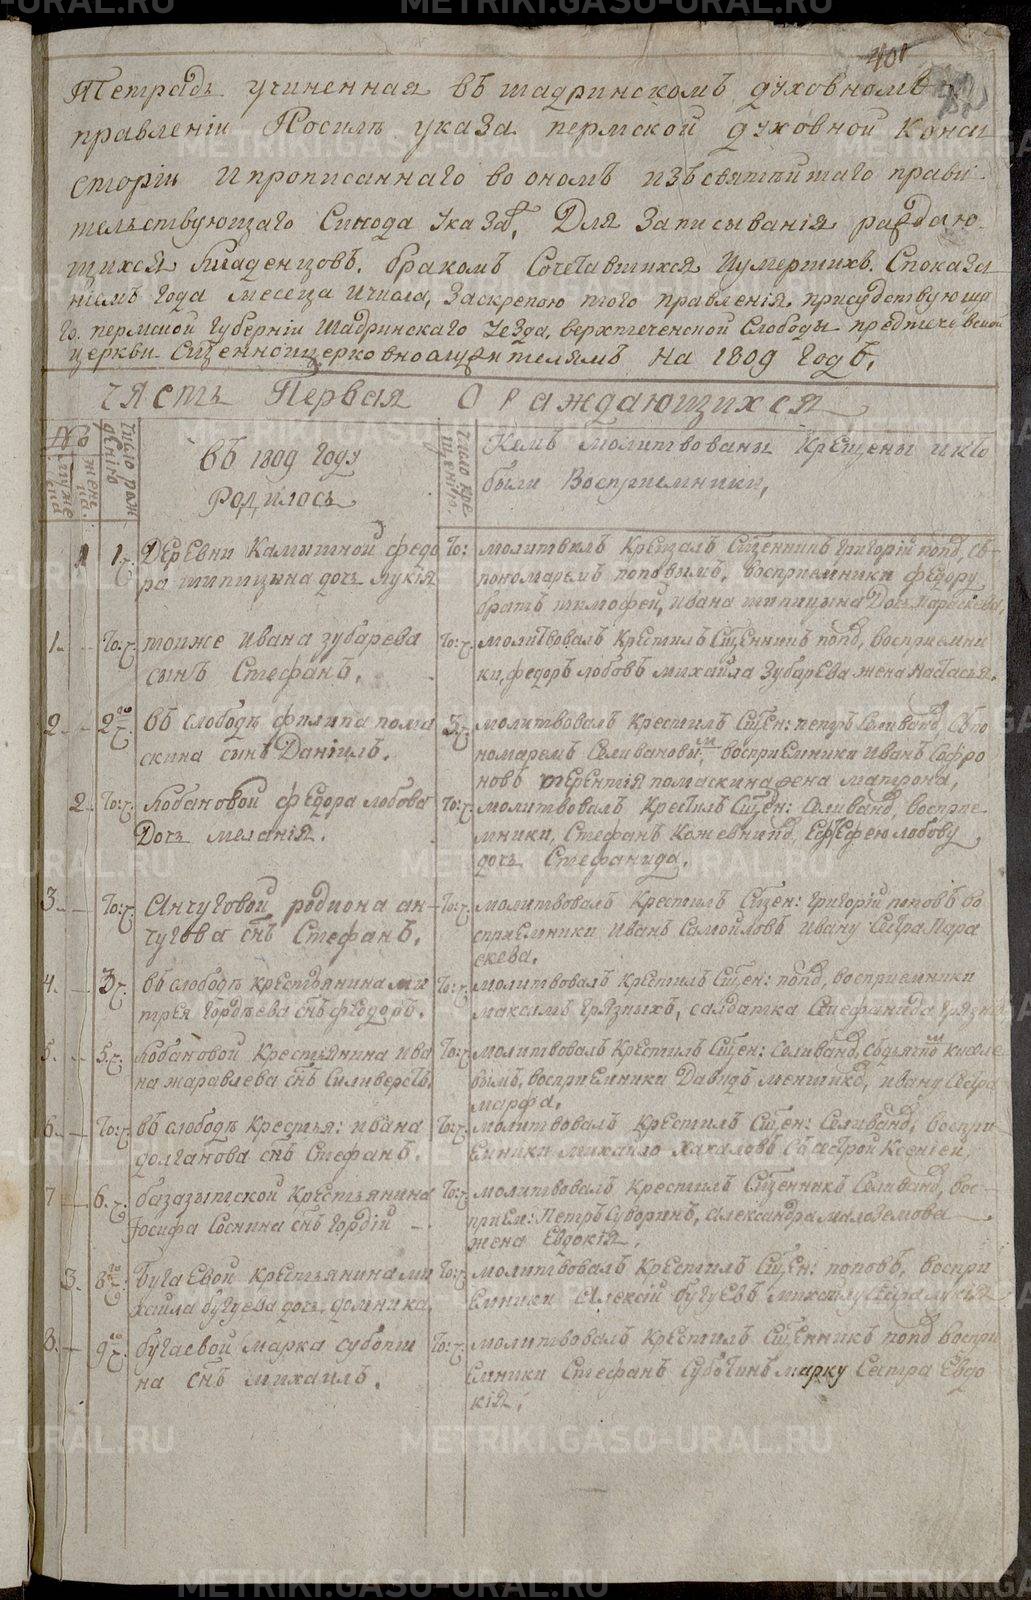 401
Тетрадь учиненная въ шадринскомъ духовномъ
правленіи Посилѣ указа пермской духовной Конси
сторіи Ипрописаннаго во ономъ изъ святѣйшаго прави
тельствующаго Синода Указа, Для Записыванія раждаю
щихся Младенцовъ. бракомъ Сочетавшихся Иумершихъ. Споказа
ніемъ года месеца Ичисла, Заскрепою того правленія. присудствующа
го. пермской губерніи Шадринскаго уезда, верхтеченской Слободы предтечевской
церкви Сщенноицерковнослужителямъ на 1809 годъ.
часть Первая О раждающихся
№
муже
ска
жене
ка.
Число рож
денія
въ 1809 году
родилось
Число кре
щенія.
Кемъ молитвованы Крещены икто
были Воспріемники,
1 1. Деревни Камышной федо
ра шипицына дочь лукія
То: молитвилъ Крещалъ Сщенникъ григорій попо, съ
пономаремъ поповымъ, восприемники федору
братъ тимофей, ивана шипицына Дочь Параскева,
1. То: тоиже ивана зубарева
сынъ Стефанъ.
То: молитвовалъ Крестилъ Сщенникъ попо, восприемни
ки, федоръ лобовъ михайла Зубарева жена настасья.
2 2го въ слободѣ филипа пома
скина сынъ Даніилъ.
3 молитвовалъ Крестилъ Сщен: петръ Селивано, Съпо
номаремъ Селивановымъ, восприемники иванъ Софро
новъ терентія помаскина жена матрона,
2. То: Лобановой федора лобова
Дочь меланія.
То: молитвовалъ Крестилъ Сщен: Селивано, воспрпе
мники, Стефанъ Кожевнико, Ефефею лобову
дочь Стефанида.
3. То: Анчуговой родиона ан
чугова снъ Стефанъ.
То: молитвовалъ Крестилъ Сщен: григорій поповъ во
сприемники иванъ Самойловъ ивану Сестра Пара
скева.
4. 3 въ слободѣ крестьянина ми
трея гордѣева снъ федоръ.
То: молитвовалъ Крестилъ Сщен: попо, восприемники
максимъ грязныхъ, салдатка Стефанида грязн
5. 5. Лобановой Крестьянина ива
на жаравлева снъ Силиверстъ.
То: молитвовалъ Крестилъ Сщен: Селивано, Съдьячко киселе
вымъ, восприемники Давидъ меншико, ивану Сестра
марфа.
6. То: въ слободѣ Крестья: ивана
долганова снъ Стефанъ.
То: молитвовалъ Крестилъ Сщен: Селивано, воспри
емники михайло хахаловъ Съ Сестрой Ксеніей.
7 6. базазытской Крестьянина
Іосифа Соснина снъ гордій
То: молитвовалъ Крестилъ Сщенникъ Селивано, вос
прием: Петръ Суворинъ, Александра малоземова
жена Евдокія.
3. 8го Бугаевой Крестьянина ми
хайла бугуева дочь домника
То: молитвовалъ Крестилъ Сщен: поповъ, воспри
емники Алексій бугуевъ михайлу Сестра лукія
8. 9го бугаевой марка субоши
на снъ михаилъ.
То: молитвовалъ Крестилъ Сщенникъ попо воспри
емники Стефанъ Суботинъ марку Сестра Евдо
кія.